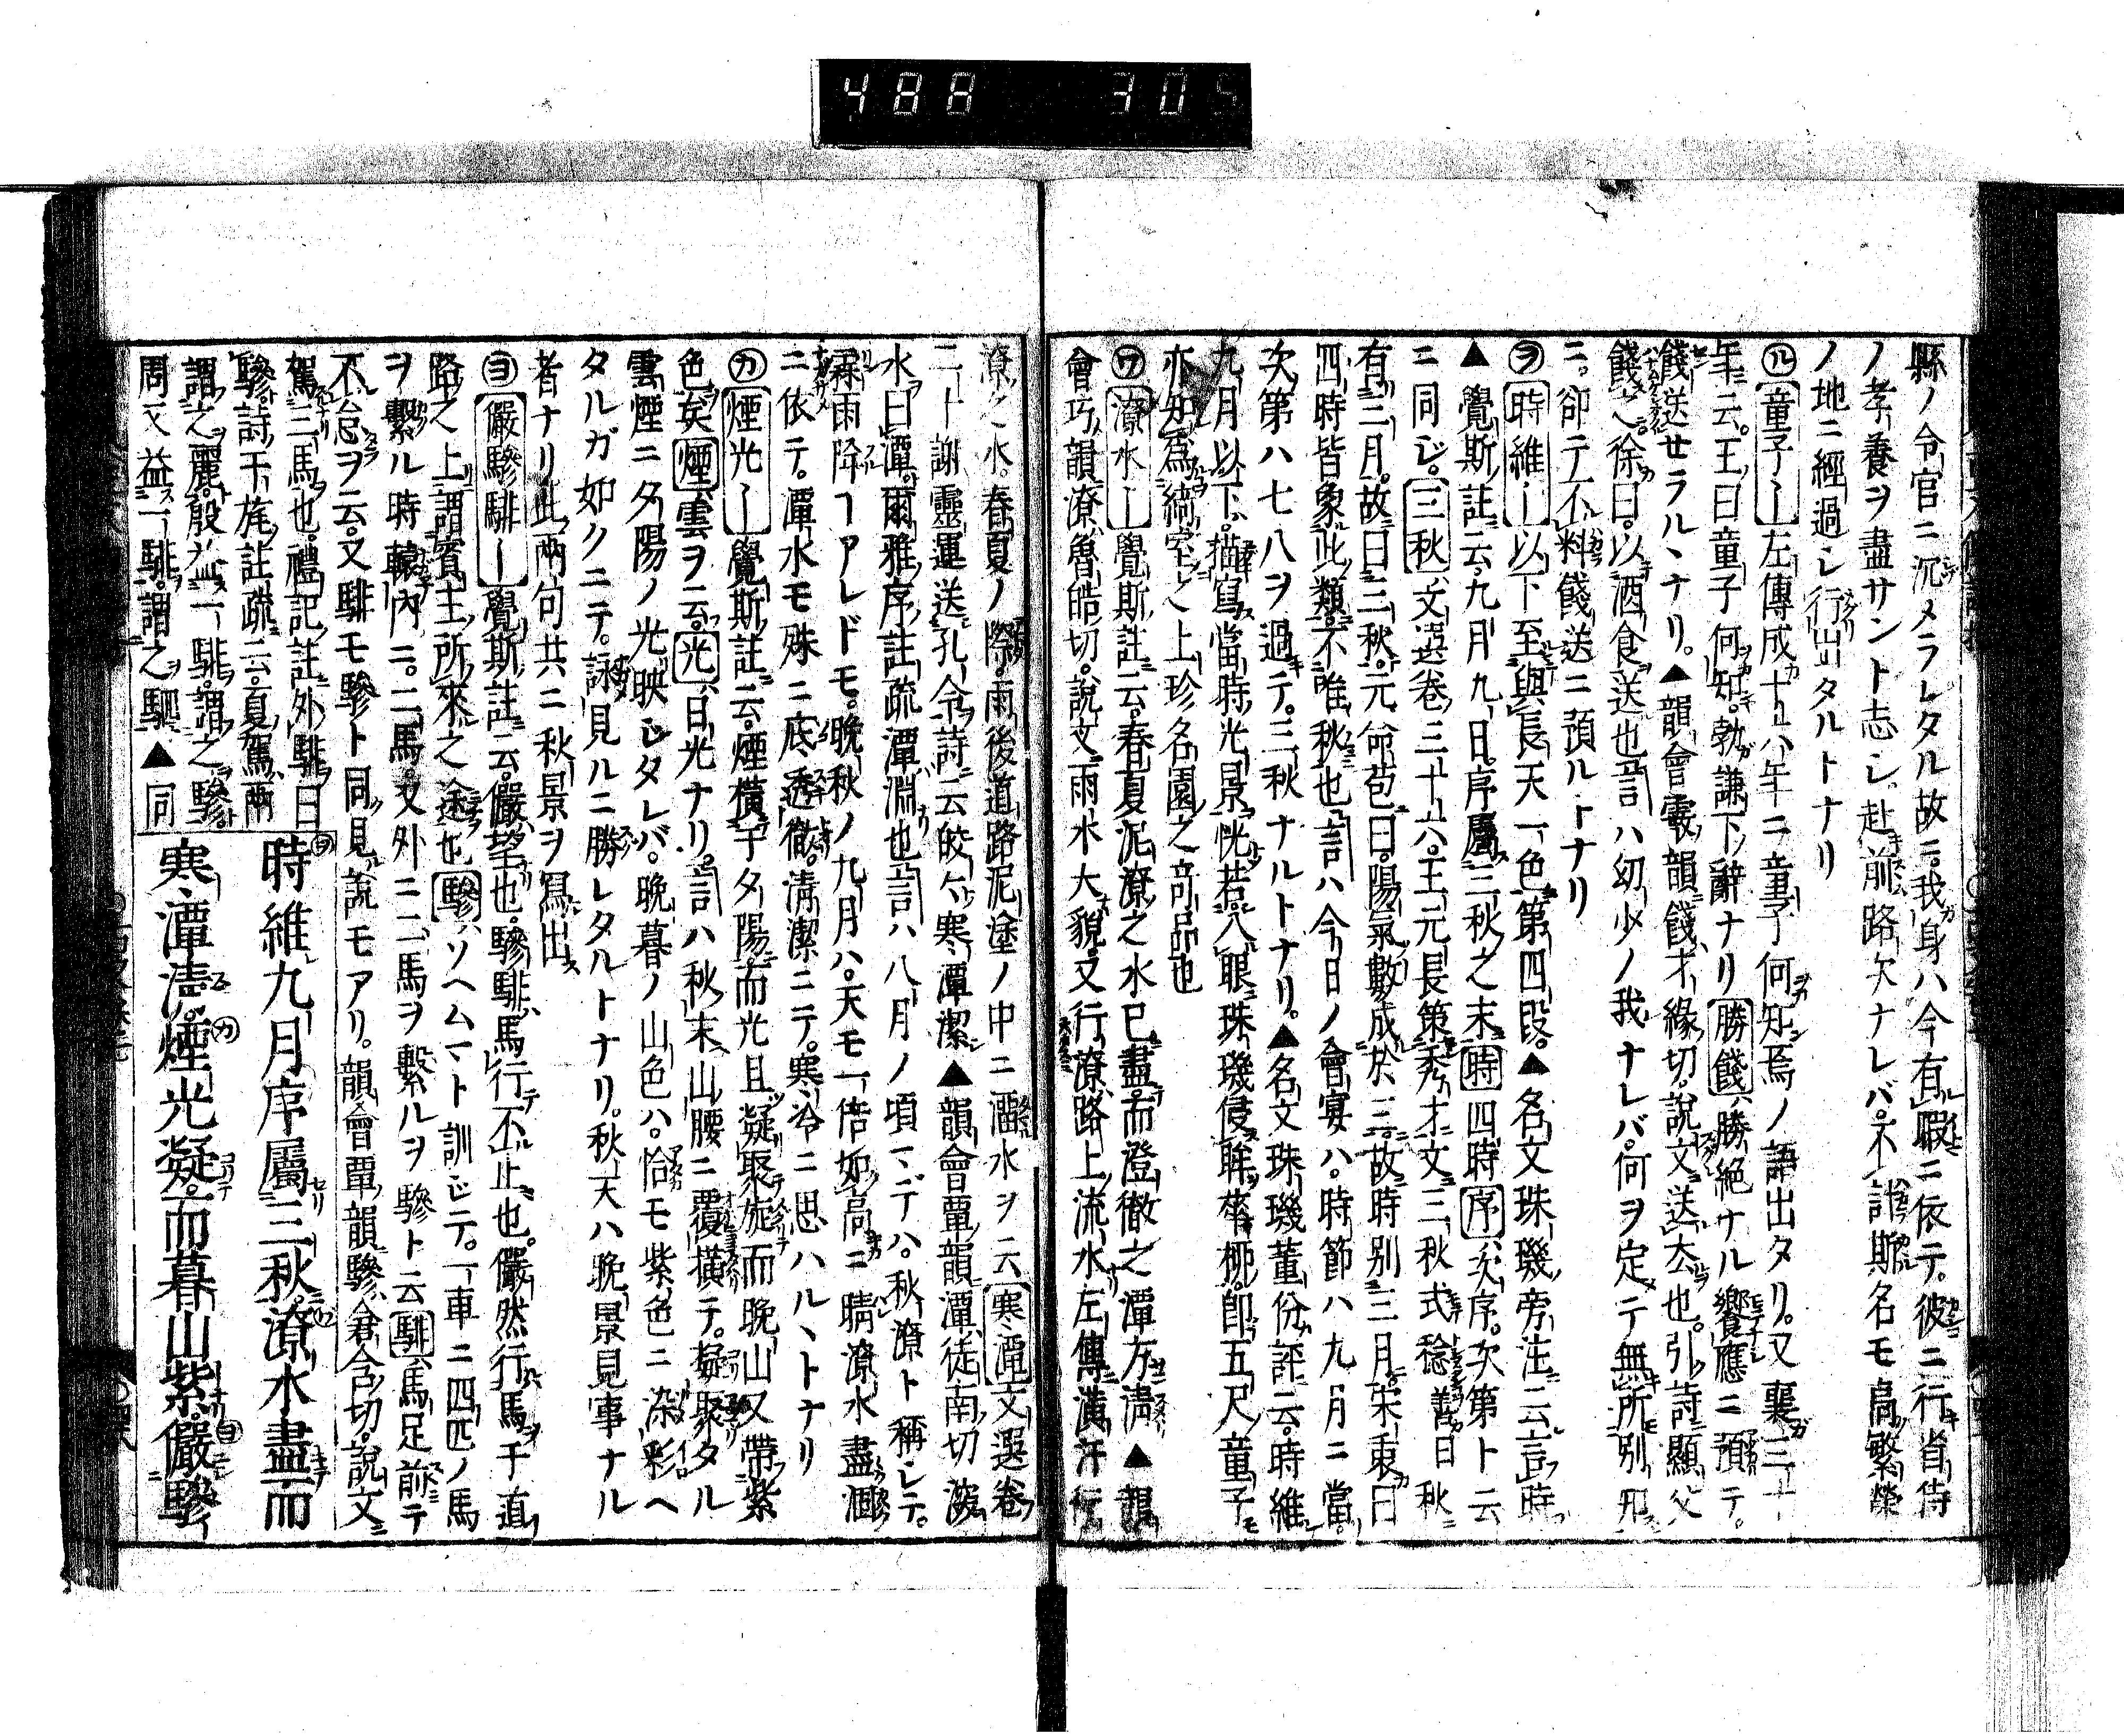 488 305
縣ノ令官ニ沉メラレタル故ニ我身ハ今有暇ニ依テ彼ニ行キ省侍
ノ孝養ヲ盡サント志シ赴前路欠ナレバ不計斯名モ高繁榮
ノ地ニ經過シ行出タルトナリ
㋸童子〡左傳成十六年ニ童子何知焉ノ語出タリ又襄三十
年ニ云王曰童子何知勃謙下辭ナリ勝餞勝絶ナル饗應ニ預テ
餞送セラルヽナリ▲韻會霰韻餞才緣切說文送去也引詩顯父
餞之徐曰以酒食送也言ハ幼少ノ我ナレバ何ヲ定テ無所別知
ニ卻テ不料餞送ニ預ルトナリ
㋾時維〡以下至與長天一色第四段▲名文珠璣旁注云言時
▲覺斯註云九月九日序屬三秋之末時四時序次序次第ト云
ニ同ジ三秋文選卷三十六王元長策秀才文三秋式稔善曰秋
有三月故曰三秋元命苞曰陽氣數成於三故時別三月宋衷曰
四時皆象此類不唯秋也言ハ今日ノ會宴ハ時節ハ九月ニ當
次第ハ七八ヲ過テ三秋ナルトナリ▲名文珠璣董份評云時維
九月以下描寫當時光景恍若入眼珠璣侵眸蕐栵卽五尺童子
亦知爲綺筵之上珍名園之奇品也
㋻潦水〡覺斯註云春夏泥潦之水已盡而澄徹之潭方淸▲韻
會巧韻潦魯皓切說文雨水大貌又行潦路上流水左傳潢汙行
潦之水春夏ノ際雨後道路泥塗ノ中ニ溜水ヲ云寒潭文選卷
二十謝靈運送孔令詩云皎皎寒潭潔▲韻會覃韻潭徒南切深
水曰潭爾雅序註疏潭淵也言ハ八月ノ頃マデハ秋潦ト稱シテ
霖雨降ヿアレドモ晩秋ノ九月ハ天モ一倍如高ニ晴潦水盡涸
ニ依テ潭水モ殊ニ底透徹淸潔ニテ寒冷ニ思ハルヽトナリ
㋕煙光〡覺斯註云煙橫于夕陽而光且凝聚旋而晩山又帶紫
色矣煙雲ヲ云光日光ナリ言ハ秋末山腰ニ覆橫テ凝聚タル
雲煙ニ夕陽ノ光映ジタレバ晩暮ノ山色ハ恰モ紫色ニ染彩ヘ
タルガ如クニテ詠見ルニ勝レタルトナリ秋天ハ晩景見事ナル
者ナリ此兩句共ニ秋景ヲ寫出ス
㋵儼驂騑〡覺斯註云儼望也驂騑馬行不止也儼然行馬于道
路之上謂賓主所來之途也驂ソヘムマト訓ジテ一車ニ四匹ノ馬
ヲ繫ル時轅內ニ二馬又外ニ二馬ヲ繫ルヲ驂ト云騑馬足前テ
不怠ヲ云又騑モ驂ト同見說モアリ韻會覃韻驂倉含切說文
駕三馬也禮記註外騑曰
驂詩干旄註疏云夏駕兩
謂之麗殷益一騑謂之驂
周又益一騑謂之駟▲同
時維九月序屬三秋潦水盡而
寒潭淸煙光凝而暮山紫儼驂